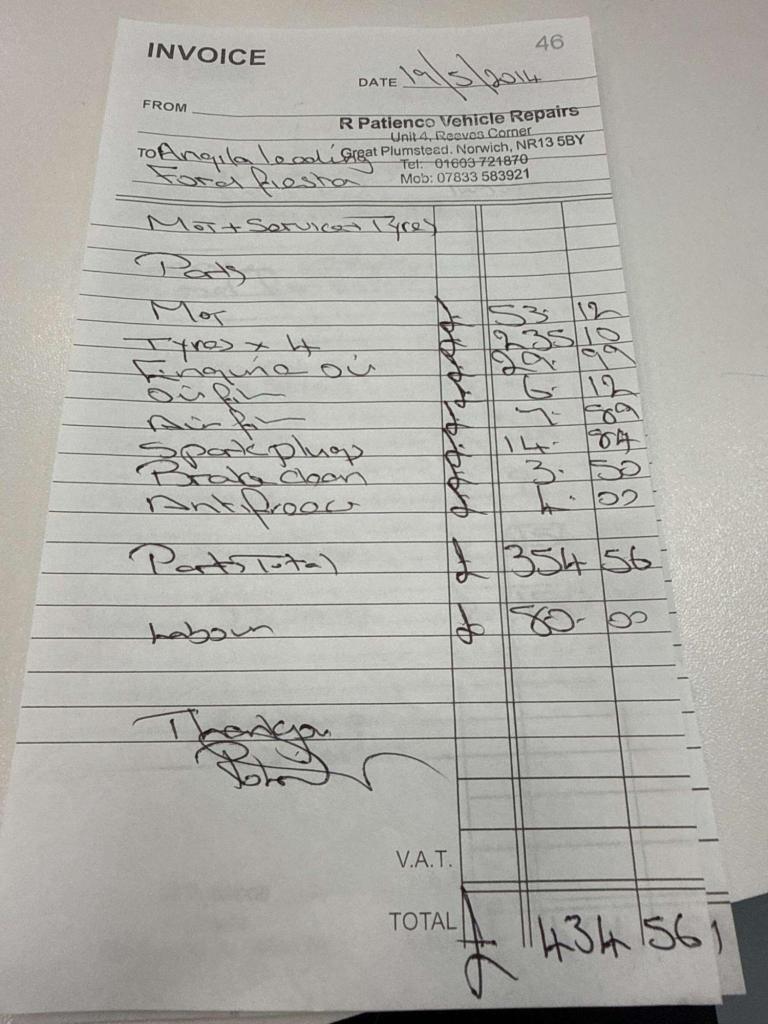 INVOICE
46
DATE 19/5/2014
FROM
R Patience Vehicle Repairs
Unit 4, Reeves Corner
Great Plumstead. Norwich, NR13 5BY
Tel: 01603 721870
Mob: 07833 583921
TO Angila leading
Ford fiesta
Mot + Service + Tyres
Parts
Mot £ 53. 12
Tyres x 4 £ 235 10
Enguine oil £ 29. 99
Oil fil £ 6. 12
Air fil £ 7. 89
Spark plugs £ 14. 84
Brake clean £ 3. 50
Antifreeze £ 4. 00
Parts Total £ 354 56
Labour £ 80. 00
Thankyou
V.A.T.
TOTAL £ 434 56